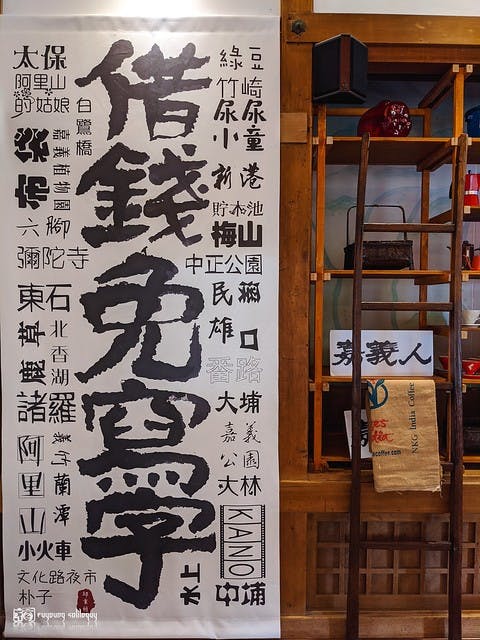 借錢免寫字
太保
阿里山
的姑娘
白鷺橋
布袋
嘉義植物園
六腳
彌陀寺
東石
鹿草
北香湖
諸羅
阿里山
小火車
義竹
蘭潭
文化路夜市
朴子
綠豆
竹崎
尿尿小童
新港
貯木池
梅山
中正公園
民雄
溪口
番路
大埔
嘉義公園
大林
KANO
水上
中埔
嘉義人
NKG India Coffee
ecoffee.com